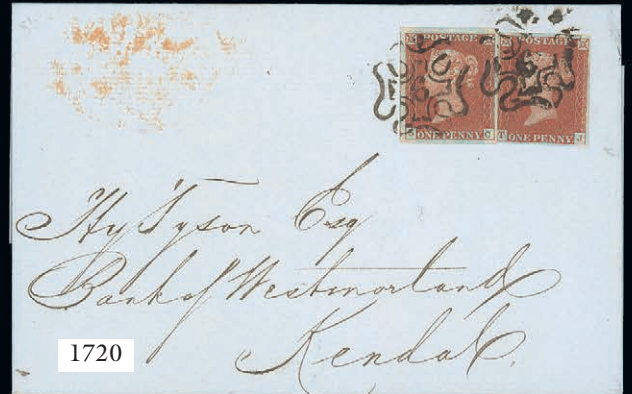 POSTAGE POSTAGE
ONE PENNY ONE PENNY
Hy Tyson Esq
Bank of Westmorland
Kendal.
1720